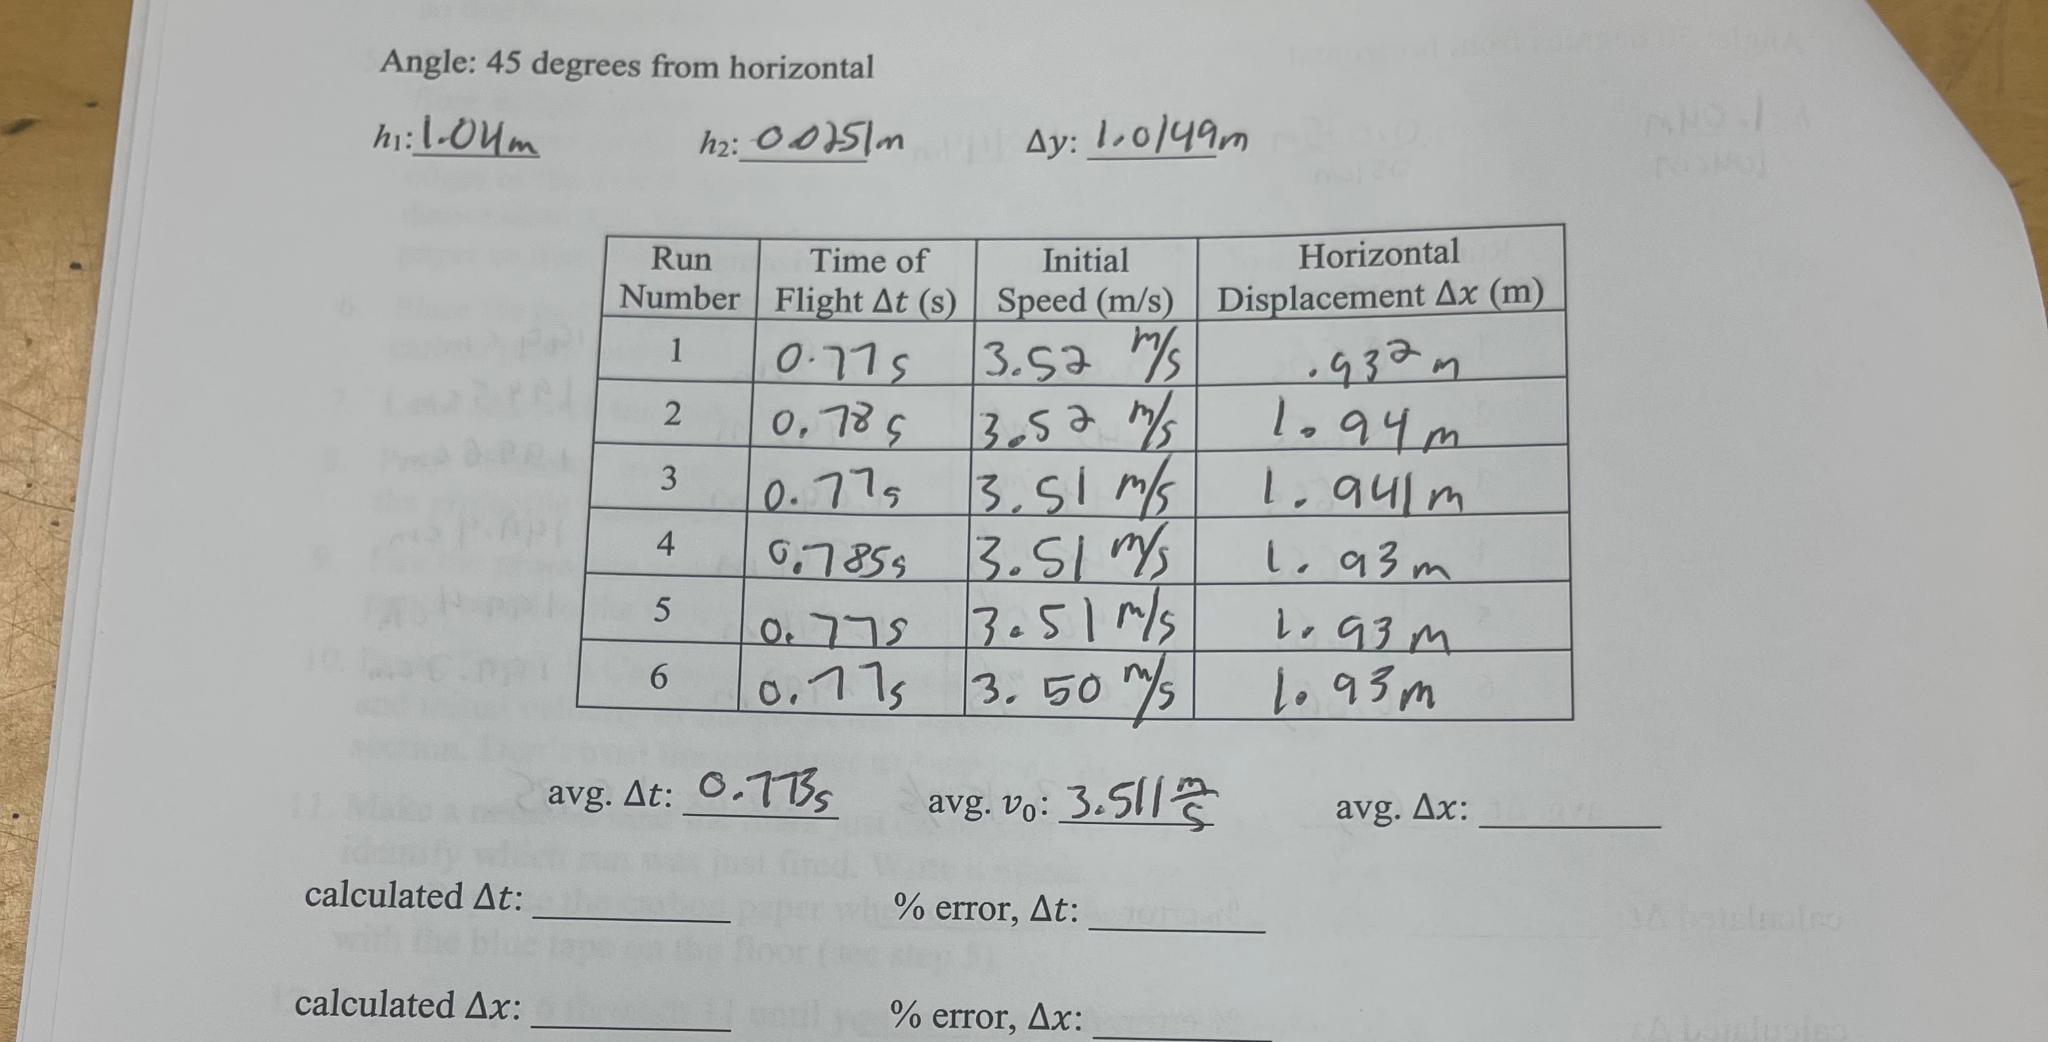 Angle: 45 degrees from horizontal
h₁: 1.04m h₂: 0.0251m Δy: 1.0149m
Run Number Time of Flight Δt (s) Initial Speed (m/s) Horizontal Displacement Δx (m)
1 0.77s 3.52 m/s .932 m
2 0.78s 3.52 m/s 1.94 m
3 0.77s 3.51 m/s 1.941 m
4 0.785s 3.51 m/s 1.93 m
5 0.77s 3.51 m/s 1.93 m
6 0.77s 3.50 m/s 1.93m
avg. Δt: 0.773s avg. v₀: 3.511 m/s avg. Δx:
calculated Δt: % error, Δt:
calculated Δx: % error, Δx: